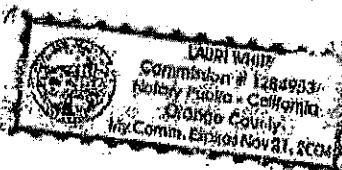 LAURI WHITE
Commission # 1284933
Notary Public - California
Orange County
My Comm. Expires Nov 21, 2004